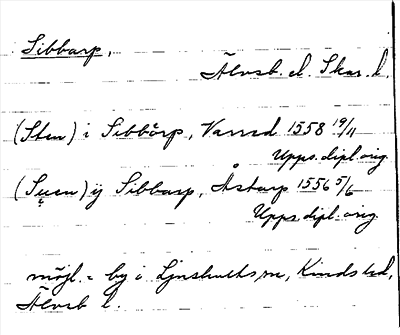 Sibbarp,
Älvsb. el. Skar. l.
(Sten) i Sibbörp, Varred 1558 19/11
Upps. dipl. orig.
(Suen) ij Sibbarp, Åstarp 1556 5/6
Upps dipl. orig.
möjl. = by i Ljushults sn, Kinds hd,
Älvsb l.